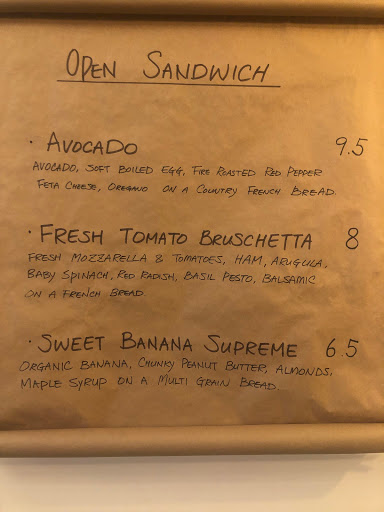 OPEN SANDWICH
· AVOCADO 9.5
AVOCADO, SOFT BOILED EGG, FIRE ROASTED RED PEPPER
FETA CHEESE, OREGANO ON A COUNTRY FRENCH BREAD.
· FRESH TOMATO BRUSCHETTA 8
FRESH MOZZARELLA & TOMATOES, HAM, ARUGULA,
BABY SPINACH, RED RADISH, BASIL PESTO, BALSAMIC
ON A FRENCH BREAD.
· SWEET BANANA SUPREME 6.5
ORGANIC BANANA, CHUNKY PEANUT BUTTER, ALMONDS,
MAPLE SYRUP ON A MULTI GRAIN BREAD.